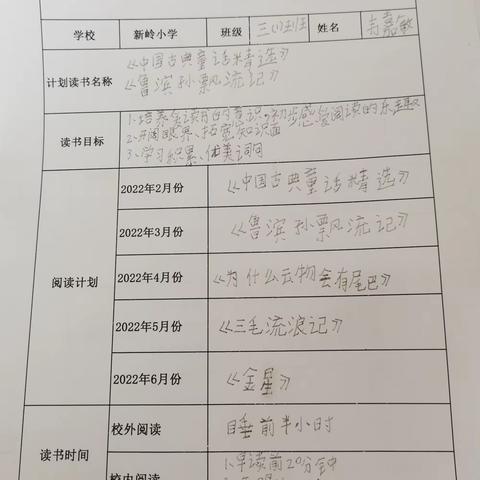 学校 新岭小学 班级 三(1)班 姓名 嘉敏
计划读书名称 《中国古典童话精选》
《鲁滨孙飘流记》
读书目标 1.培养全读的意识,初步感受阅读的乐趣
2.开阔眼界、拓宽知识面
3.学习积累、优美词句
阅读计划
2022年2月份 《中国古典童话精选》
2022年3月份 《鲁滨孙飘流记》
2022年4月份 《为什么云物会有尾巴》
2022年5月份 《三毛流浪记》
2022年6月份 《金星》
读书时间
校外阅读 睡前半小时
校内阅读 1.早读前20分钟